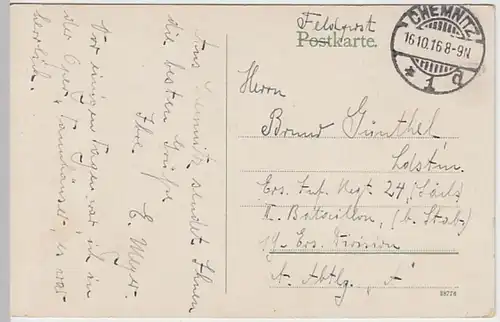 Feldpost
Postkarte.
CHEMNITZ
16.10.16.8-9N
* 1 q
Herrn
Bruno Günthel
Ldstm.
Ers. Inf. Regt. 24, (Sächs.)
II. Bataillon, (b. Stab.)
19. Ers. Division
A. Abtlg. "A"
Aus Chemnitz sendet Ihnen
die besten Grüße
Ihre
E. Meyer.
Vor einigen Tagen war ich in
der Oper "Tannhäuser", es war
herrlich.